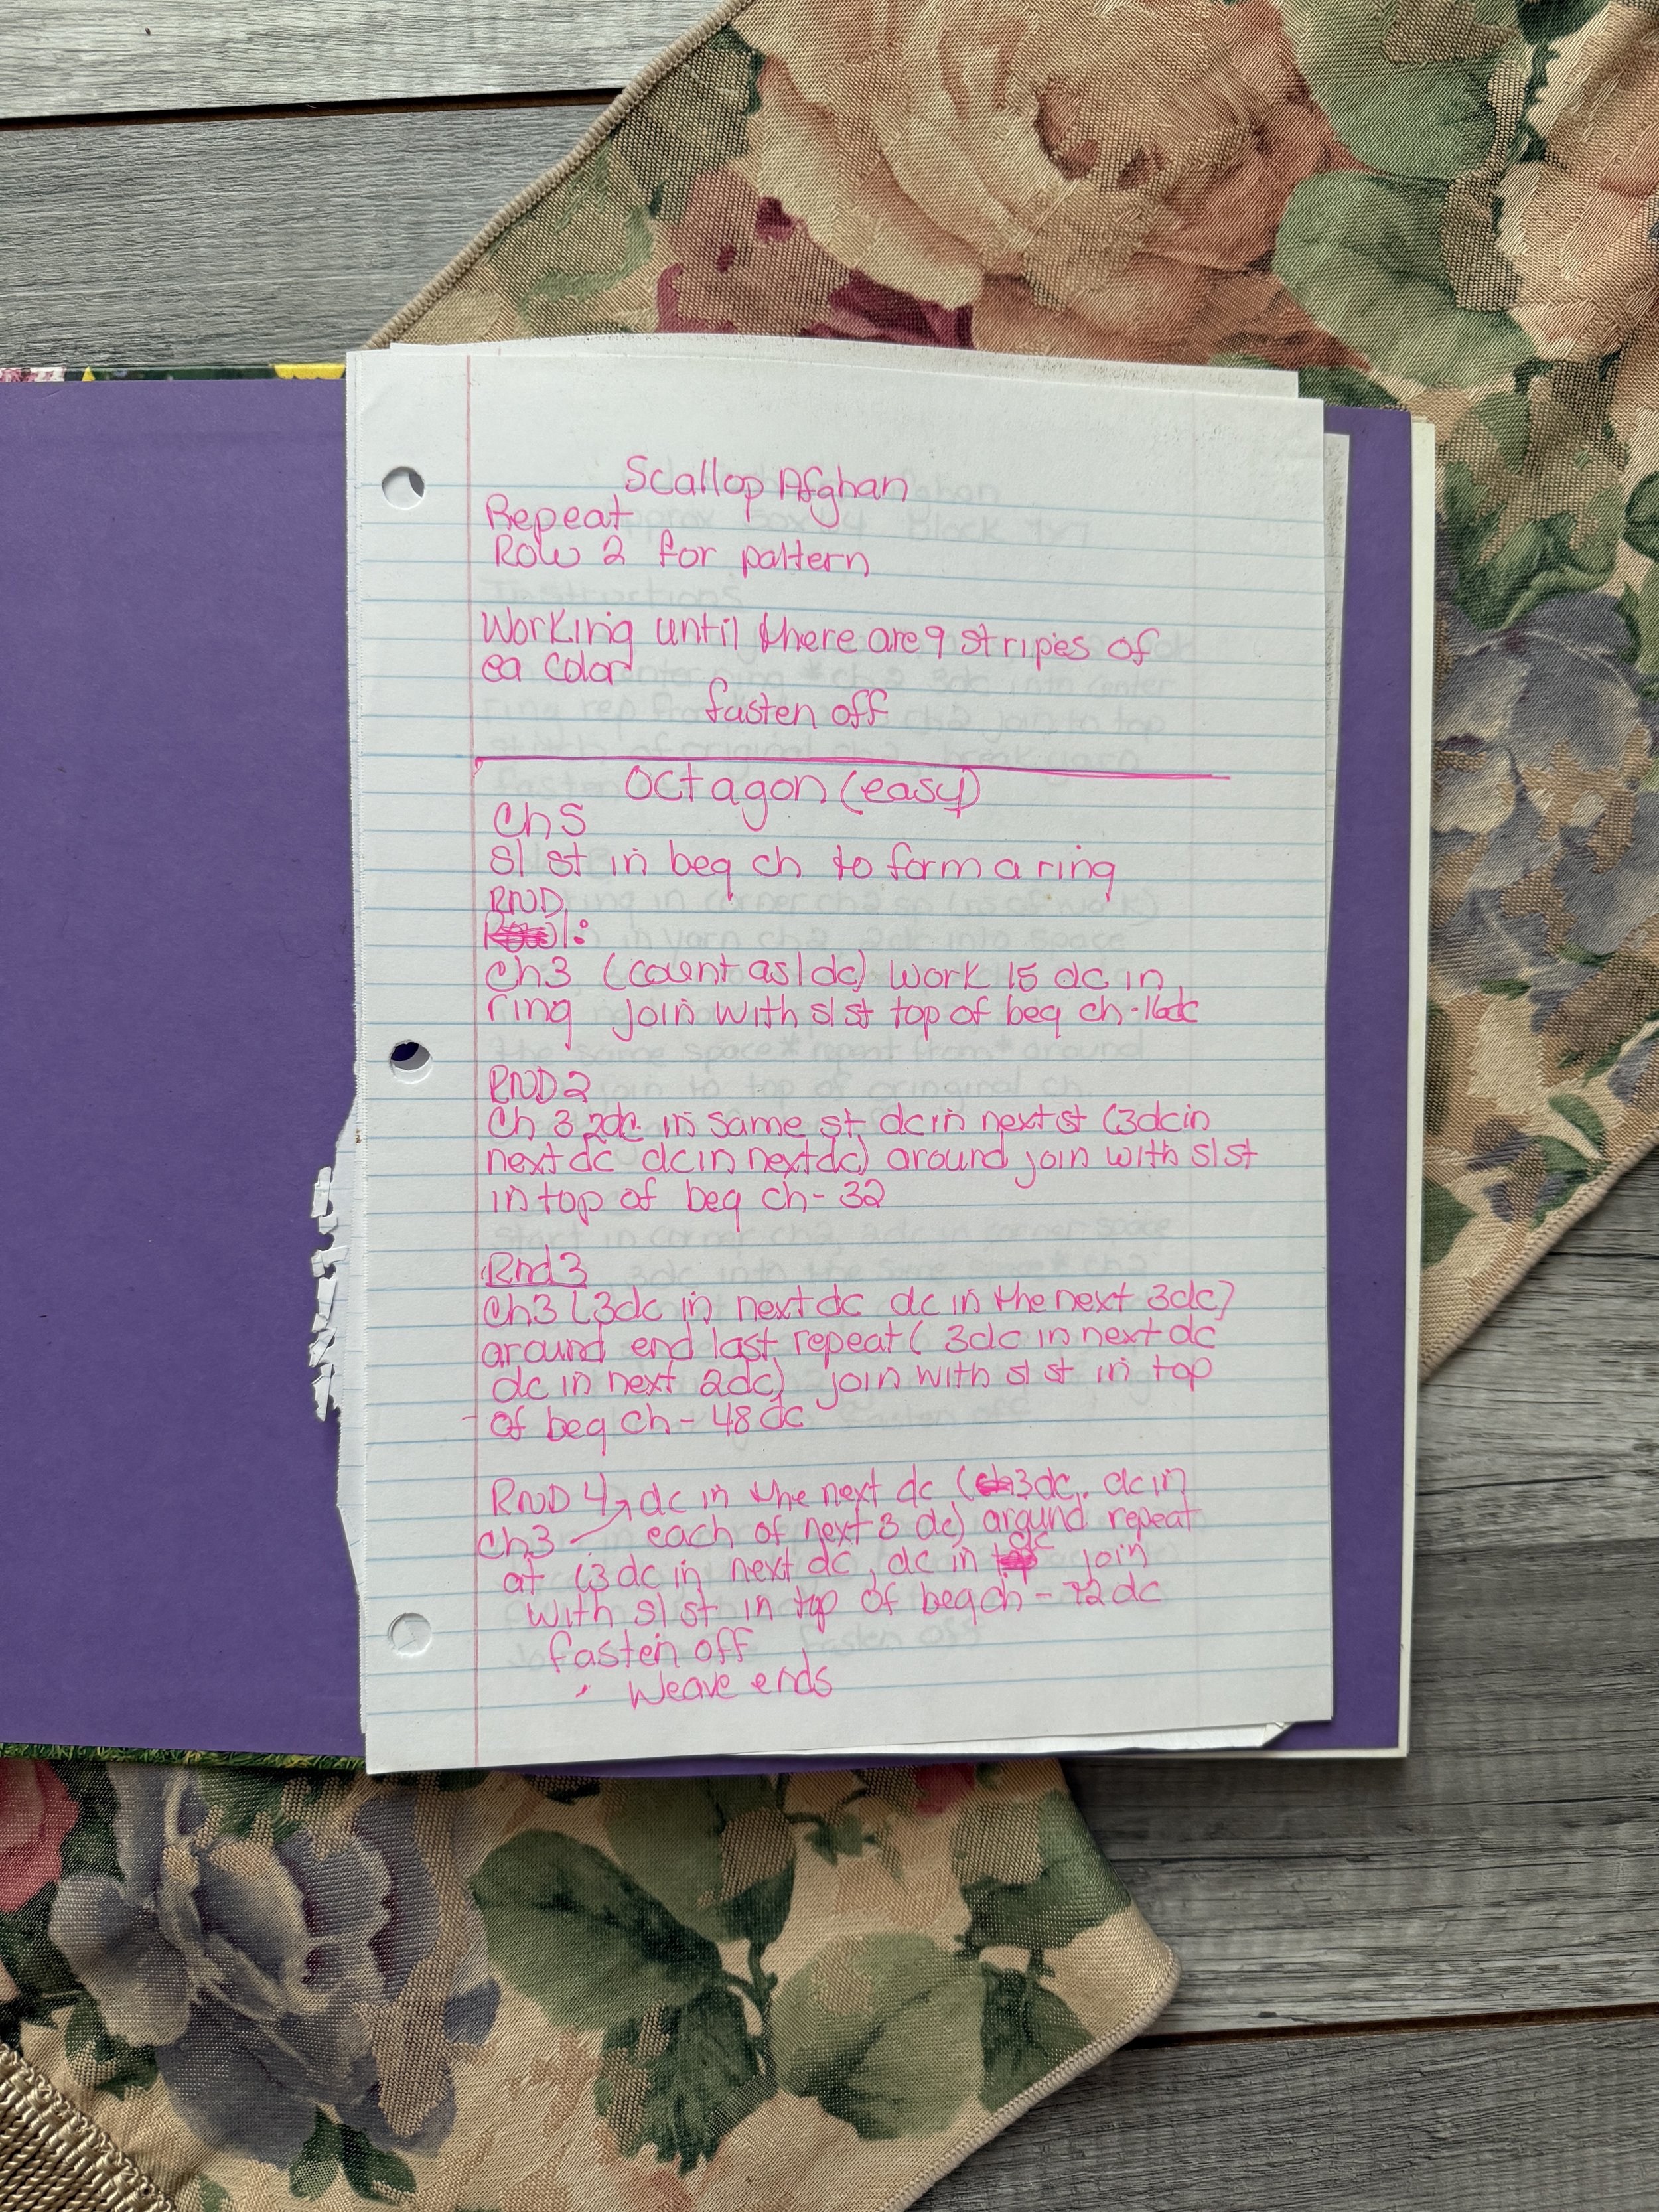 Scallop Afghan
Repeat
Row 2 for pattern
Working until there are 9 stripes of
ea color
fasten off
Octagon (easy)
Ch 5
sl st in beg ch to form a ring
RND
1:
Ch 3 (count as 1 dc) work 15 dc in
ring join with sl st top of beg ch - 16 dc
RND 2
Ch 3 2dc in same st dc in next st (3dc in
next dc dc in next dc) around join with sl st
in top of beg ch - 32
Rnd 3
Ch3 (3dc in next dc dc in the next 3dc)
around end last repeat ( 3dc in next dc
dc in next 2dc) join with sl st in top
of beg ch - 48 dc
RND 4 dc in the next dc (3dc, dc in
Ch3 each of next 3 dc) around repeat
at (3dc in next dc, dc in dc join
with sl st in top of beg ch - 72 dc
fasten off
Weave ends